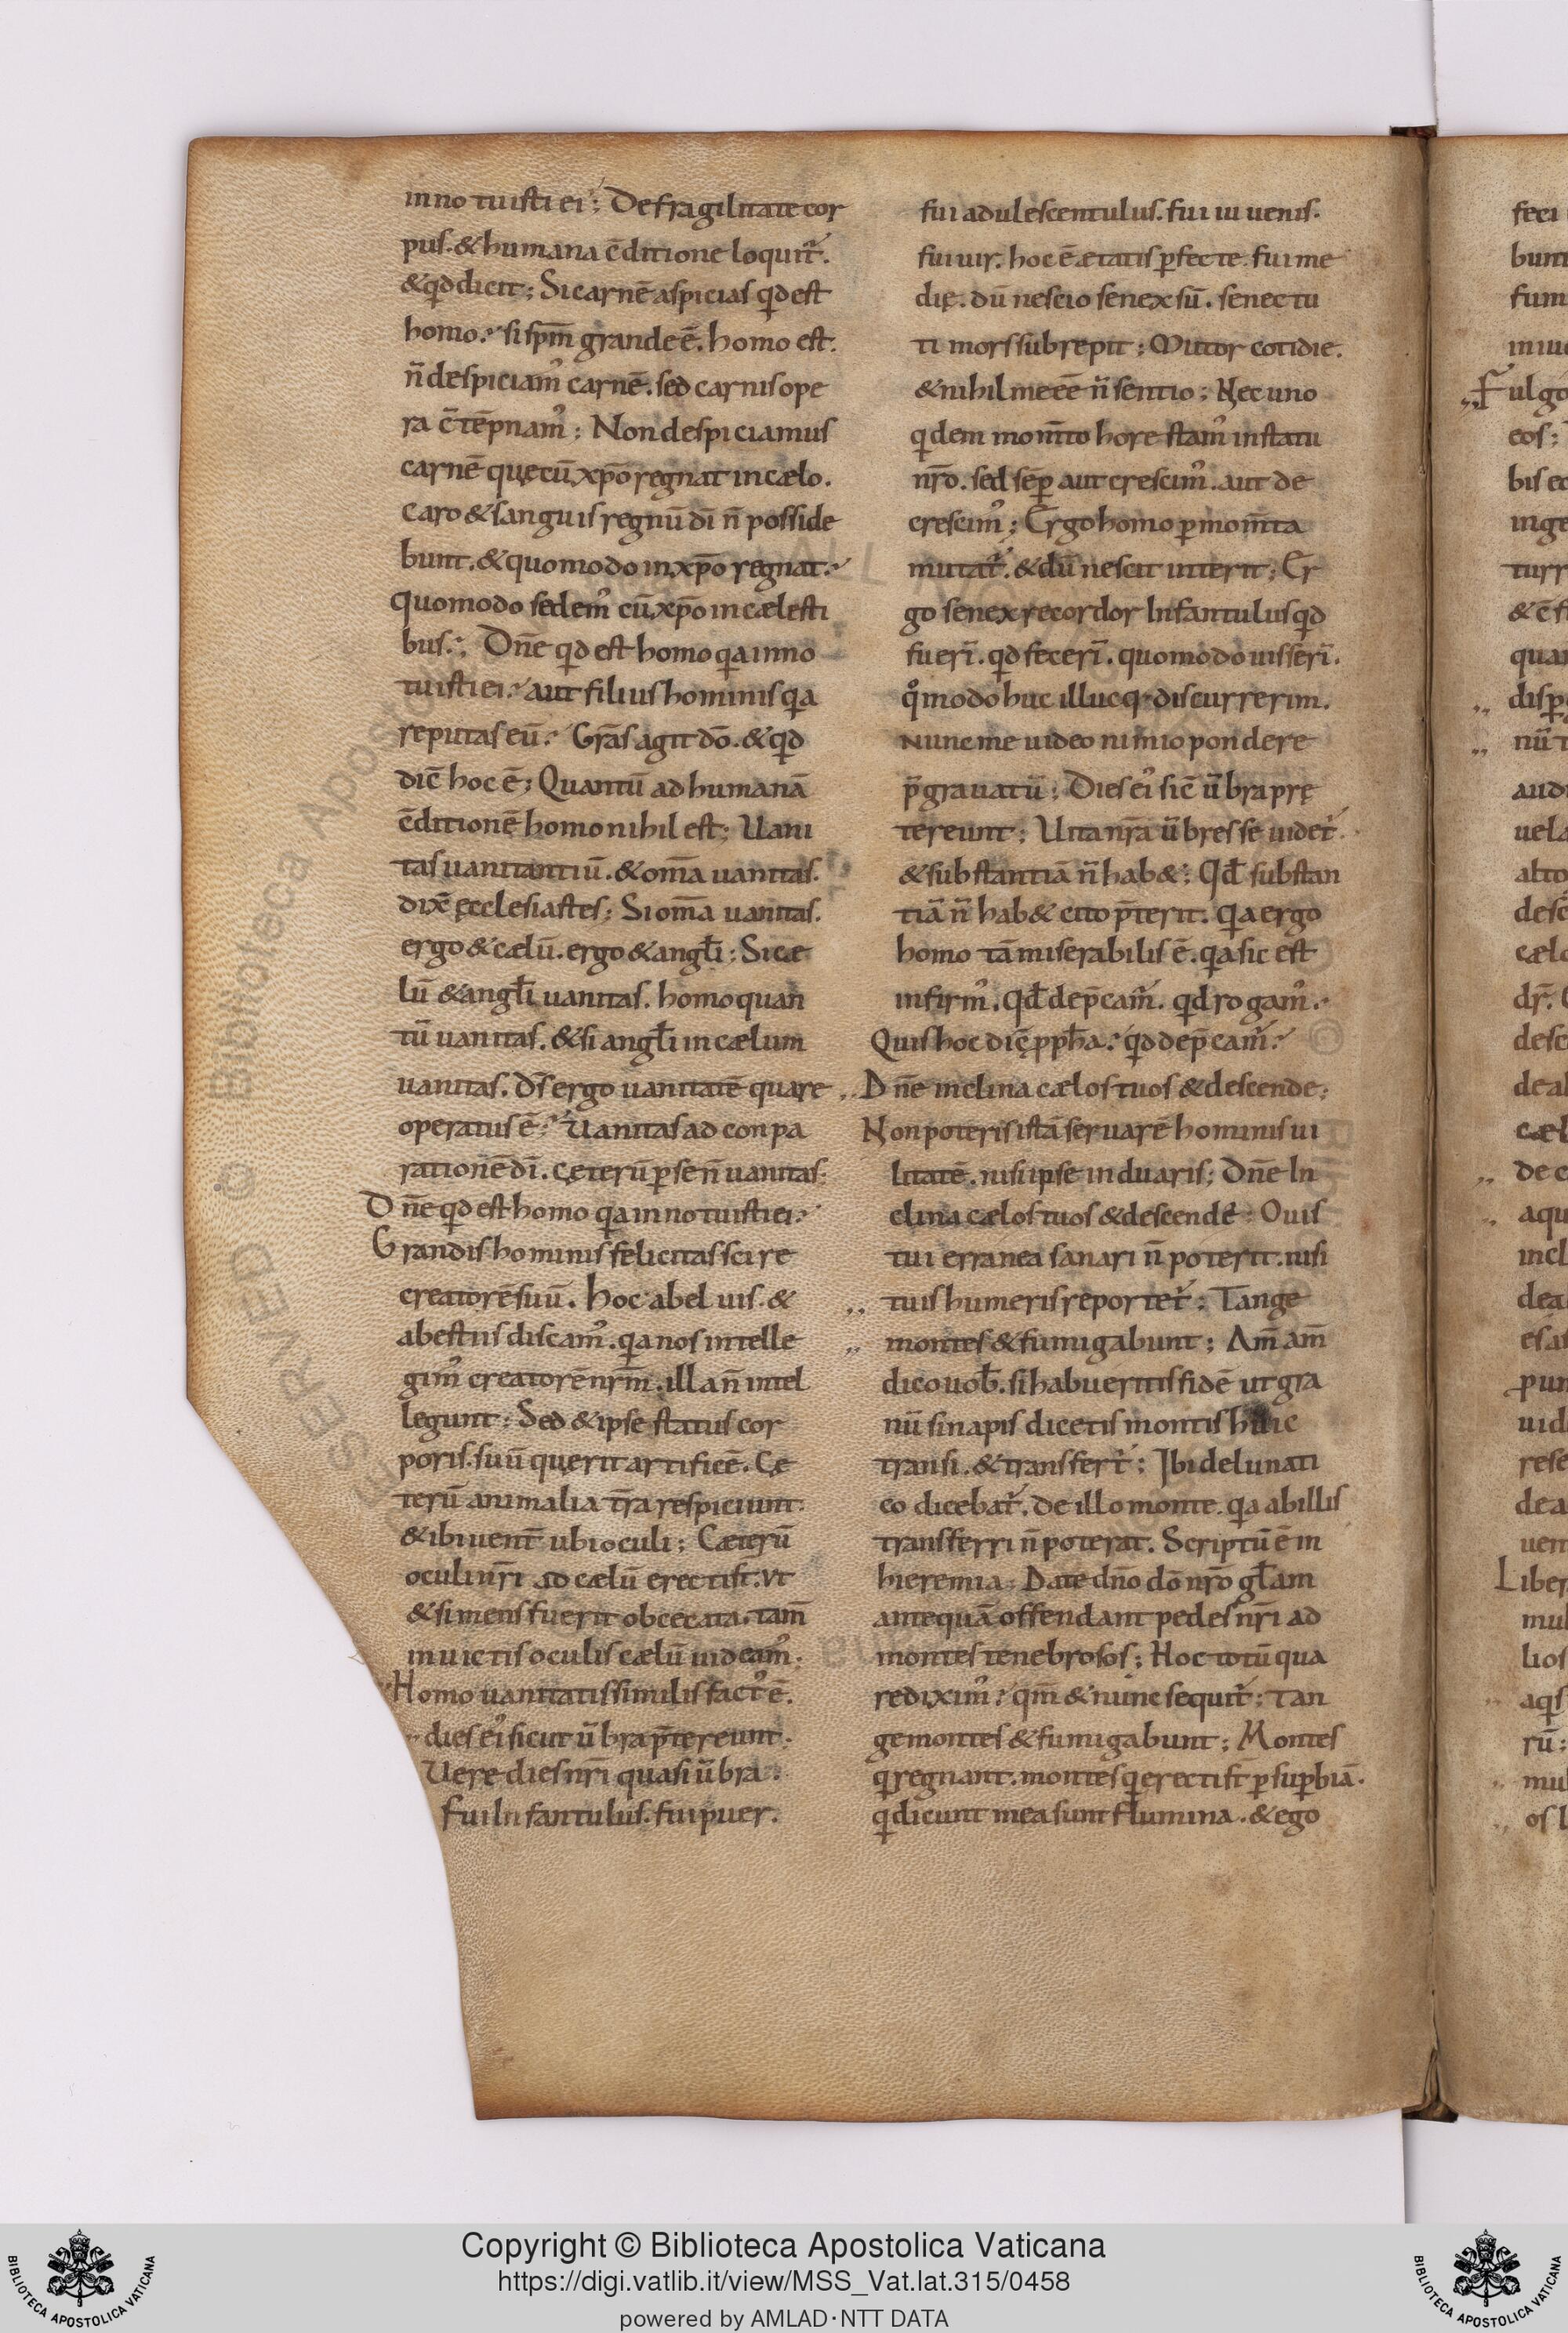 innotuisti ei; De fragilitate cor
pus. & humana c̄ditione loquit̄.
& qd dicit; Si carnē aspicias qd est
homo? si spm̄ grande ē. homo est.
n̄ despiciam᾽ carnē. sed carnis ope
ra c̄tēpnam᾽; Non despiciamus
carnē quę cū xp̄o regnat in cælo.
caro & sanguis regnū dī n̄ posside
bunt. & quomodo in xp̄o regnat?
quomodo sedem᾽ cū xp̄o in cælesti
bus? Dn̄e qd est homo qa inno
tuisti ei? aut filius hominis qa
reputas eū? Grās agit dō. & qd
dic̄ hoc ē; Quantū ad humanā
c̄ditionē homo nihil est; Uani
tas uanitantiū. & om̄a uanitas.
dix̄ ęcclesiastes; Si om̄a uanitas.
ergo & cælū. ergo & angłi; Si cæ
lū & angłi uanitas. homo quan
tū uanitas. & si angłi in cælum
uanitas. Ds̄ ergo uanitatē quare
operatus ē? Uanitas ad conpa
rationē dī. cęterū p se n̄ uanitas;
Dn̄e qd est homo qa innotuisti ei?
Grandis hominis felicitas scire
creatorē suū. hoc abel uis. &
abestiis discam᾽. qa nos intelle
gim᾽ creatorē nr̄m. illa n̄ intel
legunt; Sed & ipse status cor
poris. suū querit artificē. Cę
terū animalia tr̄a respiciunt.
& ibi uent̄ ubi oculi; Cæterū
oculi nr̄i ad cælū erecti st̄. ut
& si mens fuerit obcecata. tam̄
inuictis oculis cælū uideam᾽.
Homo uanitatis similis fact᾽ ē.
,, dies ei᾽ sicut ūbra p̄tereunt.
Uere dies nr̄i quasi ūbra.
fui Infantulus. fui puer.
fui adulescentulus. fui iuuenis.
fui uir. hoc ē ætatis pfecte. fui me
dię. dū nescio senex sū. senectu
ti mors subrepit; Mutor cotidie.
& nihil me ēē n̄ sentio; Nec uno
qdem mom̄to hore stam᾽ in statu
nr̄o. sed sēp aut crescim᾽. aut de
crescim᾽; Ergo homo p mom̄ta
mutat̄. & dū nescit interit; Er
go senex recordor Infantulus qd
fuerī. qd fecerī. quomodo uisserī.
qͦmodo huc illucq; discurrerim.
Nunc me uideo nimio pondere
p̄grauatū; Dies ei᾽ sic̄ ūbra prę
tereunt; Uita nr̄a ūbre sse uidet̄.
& substantiā n̄ hab&; Qd̄ substan
tiā n̄ hab& cito p̄terit. qa ergo
homo tā miserabilis ē. qa sic est
infirm᾽. Qd̄ dep̄cam̄. qd rogam᾽?
Quis hoc dic̄ ppħa? qd dep̄cam̄?
,, Dn̄e inclina cælos tuos & descende;
Non poteris istā seruarē hominis ui
litatē. nisi ipse induaris; Dn̄e In
clina cælos tuos & descende. Ouis
tui erranea sanari n̄ poterit. nisi
,, tuis humeris reportet̄; Tange
,, montes & fumigabunt; Am̄ am̄
dico uob̄. si habueritis fidē ut gra
nū sinapis dicetis montis huic
transi. & transfert̄; Ibi de lunati
co dicebat̄. de illo monte. qa ab illis
transferri n̄ poterat. Scriptū ē in
hieremia; Date dn̄o dō nr̄o gl̄am
antequā offendant pedes nr̄i ad
montes tenebrosos; Hoc totū qua
re dixim᾽? qm̄ & nunc sequit̄; Tan
ge montes & fumigabunt; Montes
q regnant. montes q erecti st̄ p supbiā.
q dicunt mea sunt flumina. & ego
Copyright © Biblioteca Apostolica Vaticana
https://digi.vatlib.it/view/MSS_Vat.lat.315/0458
powered by AMLAD·NTT DATA